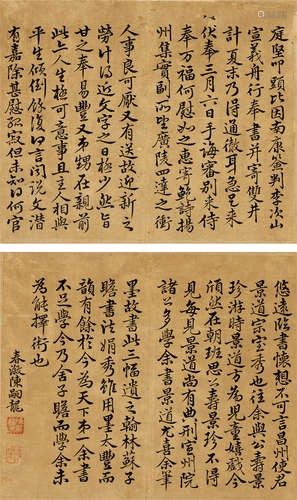 庭堅叩頭比因南康簽判李次山
宣義舟行奉書并寄雙井
計夏末乃得通徹耳急足來
伏奉三月六日手誨審別來侍
奉萬福何慰如之惠寄詩揚
州集實副所望廣陵四達之衝
人事良可厭又有送故近新之
勞計得近文字之日極少然旨
甘之奉易豐又弟甥在親前
此亦人生極可意事且主人相與
平生傾倒餘復可言聞說文潛
有嘉除甚慰孤寂但未知何官
悠遠臨書不可言昌州使君
景道宗秀也往余與公壽
珍游時景道方為兒童嬉戲今
頎然在朝班思公壽景珍不得
見每見景道尚有典刑宣州院
諸公多學余書景道尤喜余筆
墨故書此三幅遺之翰林蘇子
瞻書法娟秀雖用墨太豐而
韻有餘於今為天下第一余書
不足學今乃舍子瞻而學余未
為能擇術也
春漵陳嗣龍